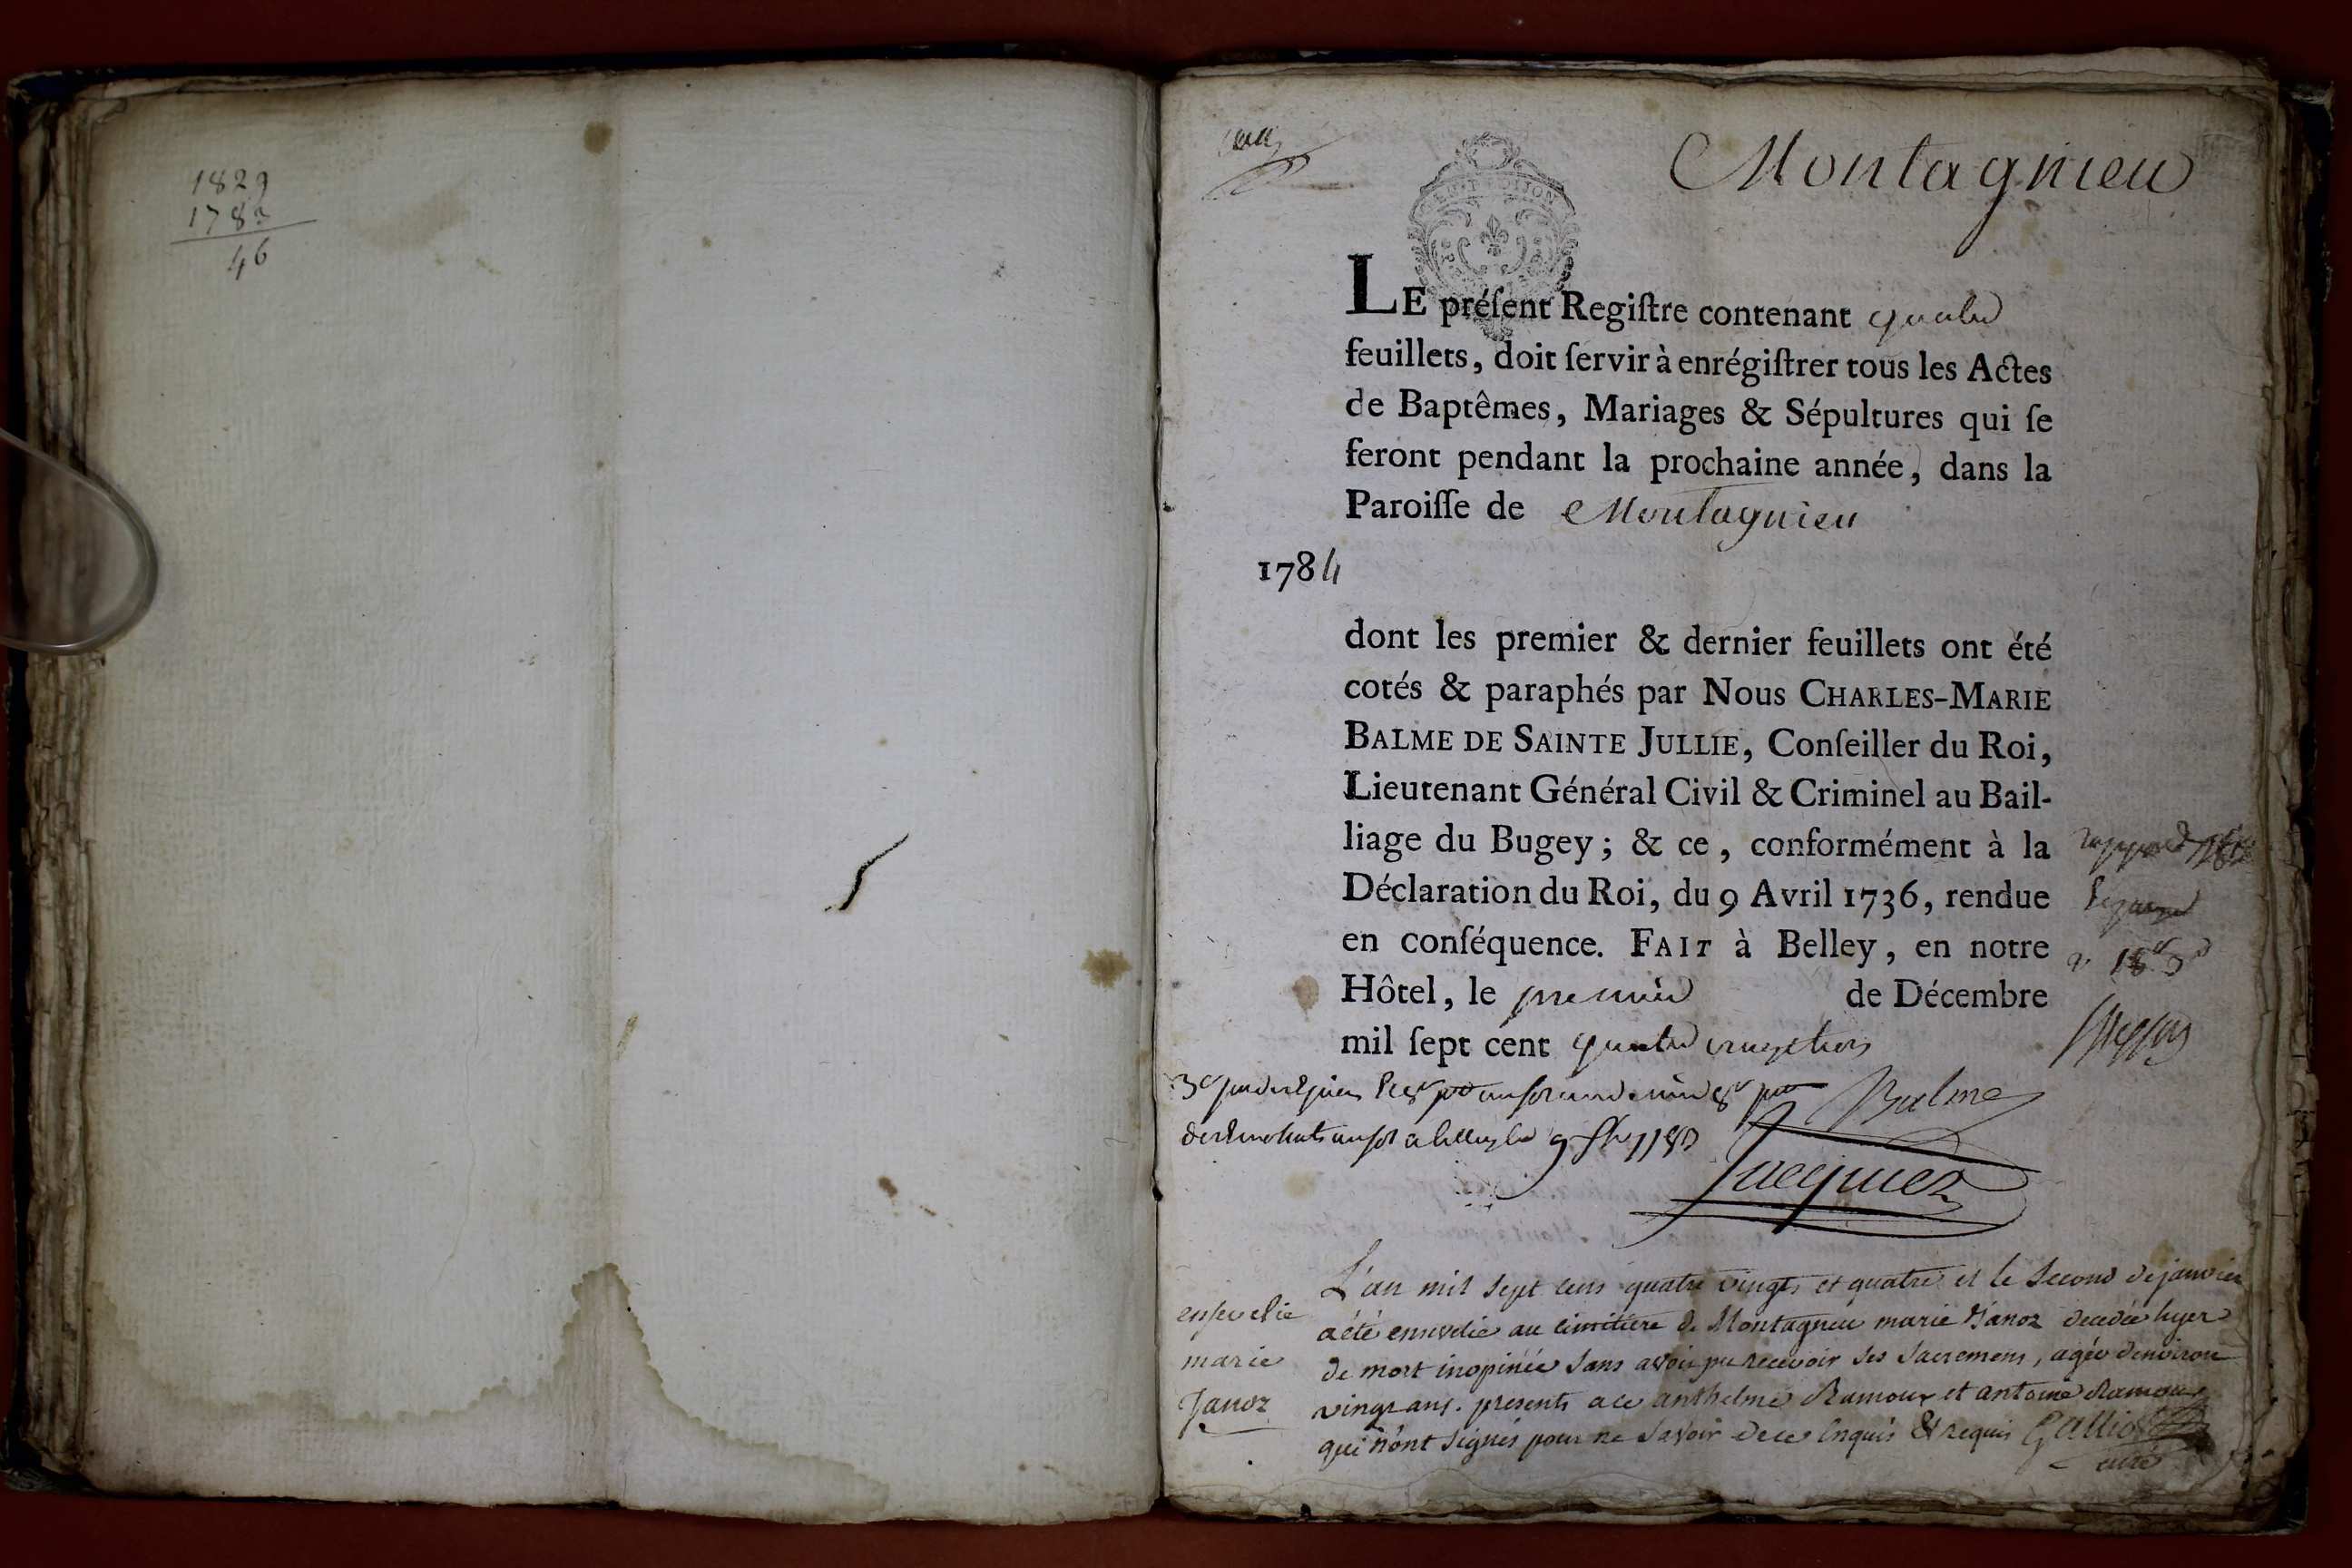 1829
1783
46
Montagnieu
LE préſent Regiſtre contenant quatre
feuillets, doit ſervir à enrégiſtrer tous les Actes
de Baptêmes, Mariages & Sépultures qui ſe
feront pendant la prochaine année, dans la
Paroiſſe de Montagnieu
1784
dont les premier & dernier feuillets ont été
cotés & paraphés par Nous CHARLES-MARIE
BALME DE SAINTE JULLIE, Conſeiller du Roi,
Lieutenant Général Civil & Criminel au Bail-
liage du Bugey ; & ce, conformément à la
Déclaration du Roi, du 9 Avril 1736, rendue
en conſéquence. FAIT à Belley, en notre
Hôtel, le premier de Décembre
mil ſept cent quatre vingt trois
Balme
Jacquez
L'an mil sept cens quatre vingts et quatre et le second de janvier
ensevelie
marie
Janoz
a été ensevelie au cimitiere de Montagnieu marie Janoz decedée hyer
de mort inopinée sans avoir pu recevoir ses sacremens, agée d'environ
vingt ans. presents a ce anthelme Ramoux et antoine Ramoux
qui n'ont signés pour ne savoir de ce enquis & requis Gallio
curé